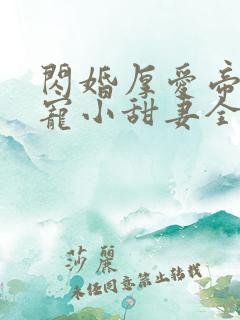 閃婚厚愛帝
寵小甜妻全
莎麗
未经同意禁止转载